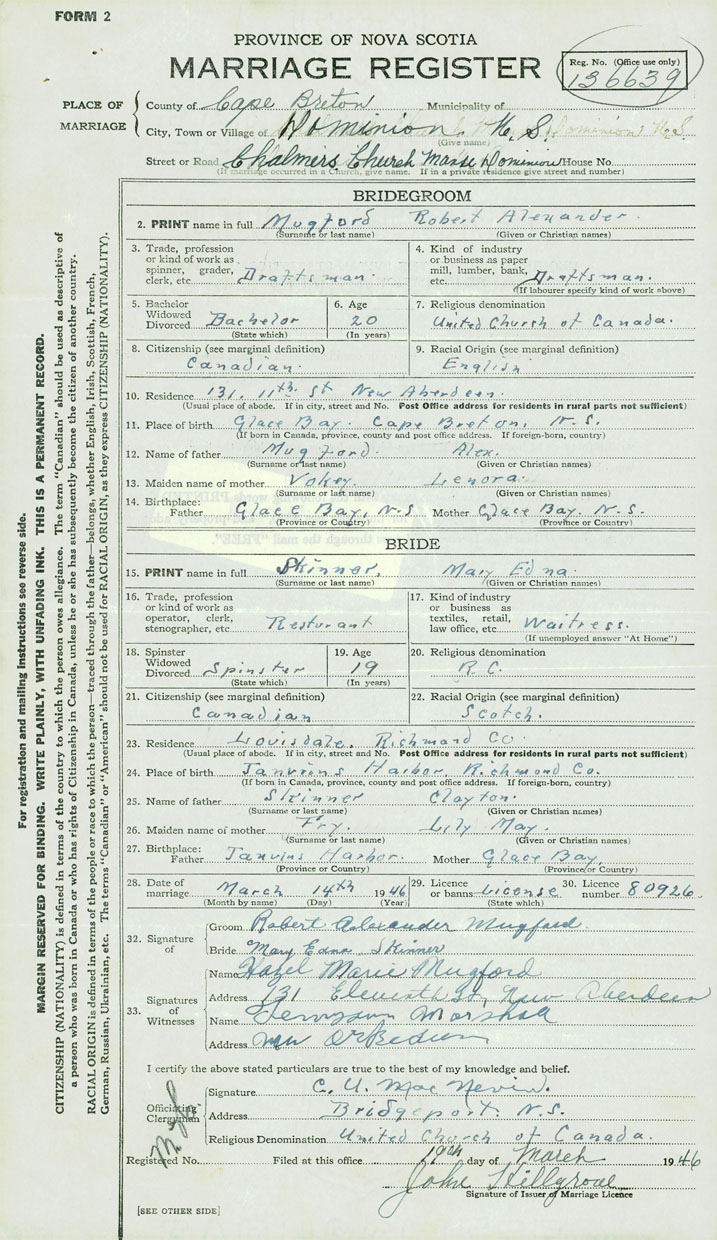 FORM 2
PROVINCE OF NOVA SCOTIA
MARRIAGE REGISTER
Reg. No. (Office use only)
136639
PLACE OF MARRIAGE
County of Cape Breton Municipality of
City, Town or Village of Dominion. N. S. Dominion N.S
(Give name)
Street or Road Chalmers Church Manse Dominion House No.
(If marriage occurred in a Church, give name. If in a private residence give street and number)
BRIDEGROOM
2. PRINT name in full Mugford Robert Alexander.
(Surname or last name) (Given or Christian names)
3. Trade, profession or kind of work as spinner, grader, clerk, etc. Draftsman.
4. Kind of industry or business as paper mill, lumber, bank, etc. Draftsman.
(If labourer specify kind of work above)
5. Bachelor Widowed Divorced Bachelor
(State which)
6. Age 20
(In years)
7. Religious denomination
United Church of Canada.
8. Citizenship (see marginal definition)
Canadian.
9. Racial Origin (see marginal definition)
English
10. Residence 131. 11th. St New Aberdeen.
(Usual place of abode. If in city, street and No. Post Office address for residents in rural parts not sufficient)
11. Place of birth Glace Bay. Cape Breton, N.S.
(If born in Canada, province, county and post office address. If foreign-born, country)
12. Name of father Mugford. Alex.
(Surname or last name) (Given or Christian names)
13. Maiden name of mother Vokey. Lenora.
(Surname or last name) (Given or Christian names)
14. Birthplace: Father Glace Bay, N.S Mother Glace Bay. N.S.
(Province or Country) (Province or Country)
BRIDE
15. PRINT name in full Skinner. Mary Edna.
(Surname or last name) (Given or Christian names)
16. Trade, profession or kind of work as operator, clerk, stenographer, etc. Resturant
17. Kind of industry or business as textiles, retail, law office, etc. Waitress.
(If unemployed answer "At Home")
18. Spinster Widowed Divorced Spinster
(State which)
19. Age 19
(In years)
20. Religious denomination
R.C.
21. Citizenship (see marginal definition)
Canadian
22. Racial Origin (see marginal definition)
Scotch.
23. Residence Louisdale. Richmond Co.
(Usual place of abode. If in city, street and No. Post Office address for residents in rural parts not sufficient)
24. Place of birth Janvrins Harbor. Richmond Co.
(If born in Canada, province, county and post office address. If foreign-born, country)
25. Name of father Skinner Clayton.
(Surname or last name) (Given or Christian names)
26. Maiden name of mother Fry. Lily May.
(Surname or last name) (Given or Christian names)
27. Birthplace: Father Janvins Harbor. Mother Glace Bay,
(Province or Country) (Province or Country)
28. Date of marriage March 14th 1946
(Month by name) (Day) (Year)
29. Licence or banns License
(State which)
30. Licence number 80926.
32. Signature of
Groom Robert Alexander Mugford.
Bride Mary Edna Skinner
33. Signatures of Witnesses
Name Hazel Marie Mugford
Address 131 Eleventh St, New Aberdeen
Name Tennyson Marshall
Address
I certify the above stated particulars are true to the best of my knowledge and belief.
Officiating Clergyman
Signature C. U. MacNevin.
Address Bridgeport. N.S.
Religious Denomination United Church of Canada.
Registered No. Filed at this office 19th day of March 1946
John
Signature of Issuer of Marriage Licence
[SEE OTHER SIDE]
For registration and mailing instructions see reverse side.
MARGIN RESERVED FOR BINDING. WRITE PLAINLY, WITH UNFADING INK. THIS IS A PERMANENT RECORD.
CITIZENSHIP (NATIONALITY) is defined in terms of the country to which the person owes allegiance. The term "Canadian" should be used as descriptive of
a person who was born in Canada or who has rights of Citizenship in Canada, unless he or she has subsequently become the citizen of another country.
RACIAL ORIGIN is defined in terms of the people or race to which the person—traced through the father—belongs, whether English, Irish, Scottish, French,
German, Russian, Ukrainian, etc. The terms "Canadian" or "American" should not be used for RACIAL ORIGIN, as they express CITIZENSHIP (NATIONALITY).